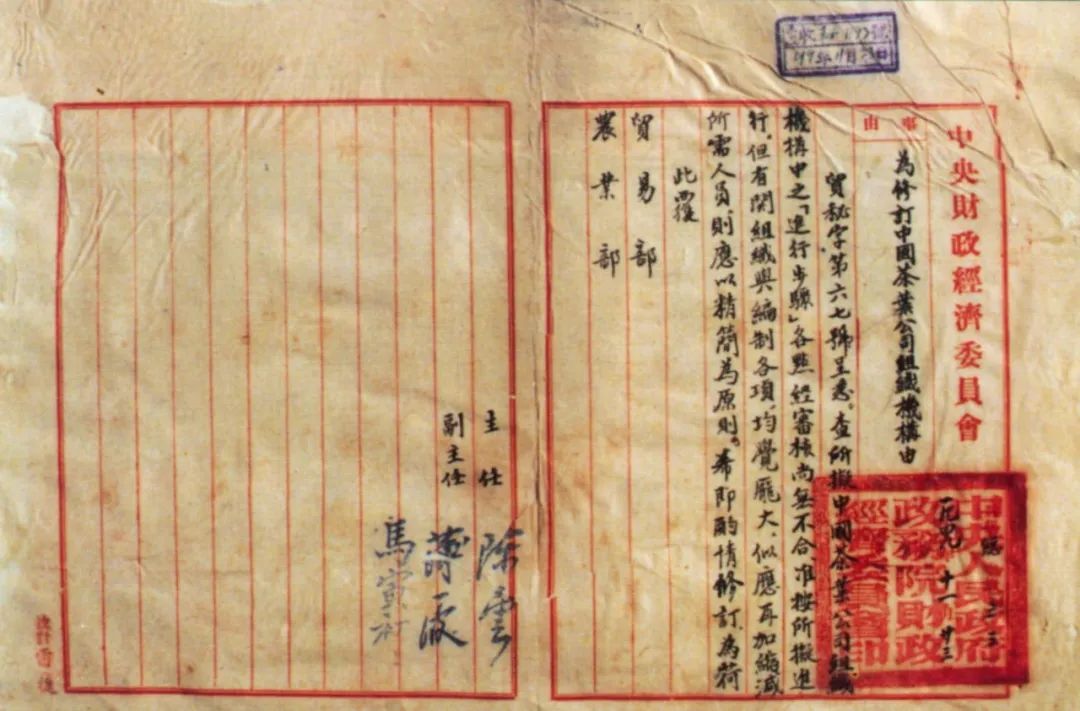 中央財政經濟委員會
事由
為修訂中國茶葉公司組織機構由
貿秘字第六七號呈悉。查所擬中國茶葉公司組織
機構中之「進行步驟」各點經審核尚無不合准按所擬進
行。但有関組織與編制各項，均覺龐大、似應再加縮減
所需人員則應以精簡為原則。希即酌情修訂為荷
此覆
貿易部
農業部
中央人民政府
政務院財政
經濟委員會印
十一 廿三
主任
副主任
陳雲
薄一波
馬寅初